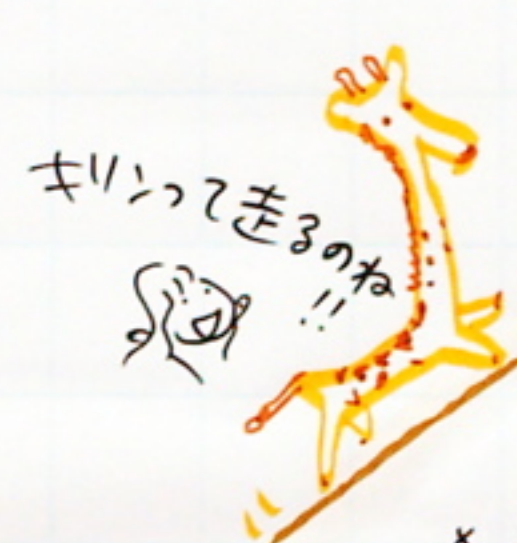 キリンって走るのね!!